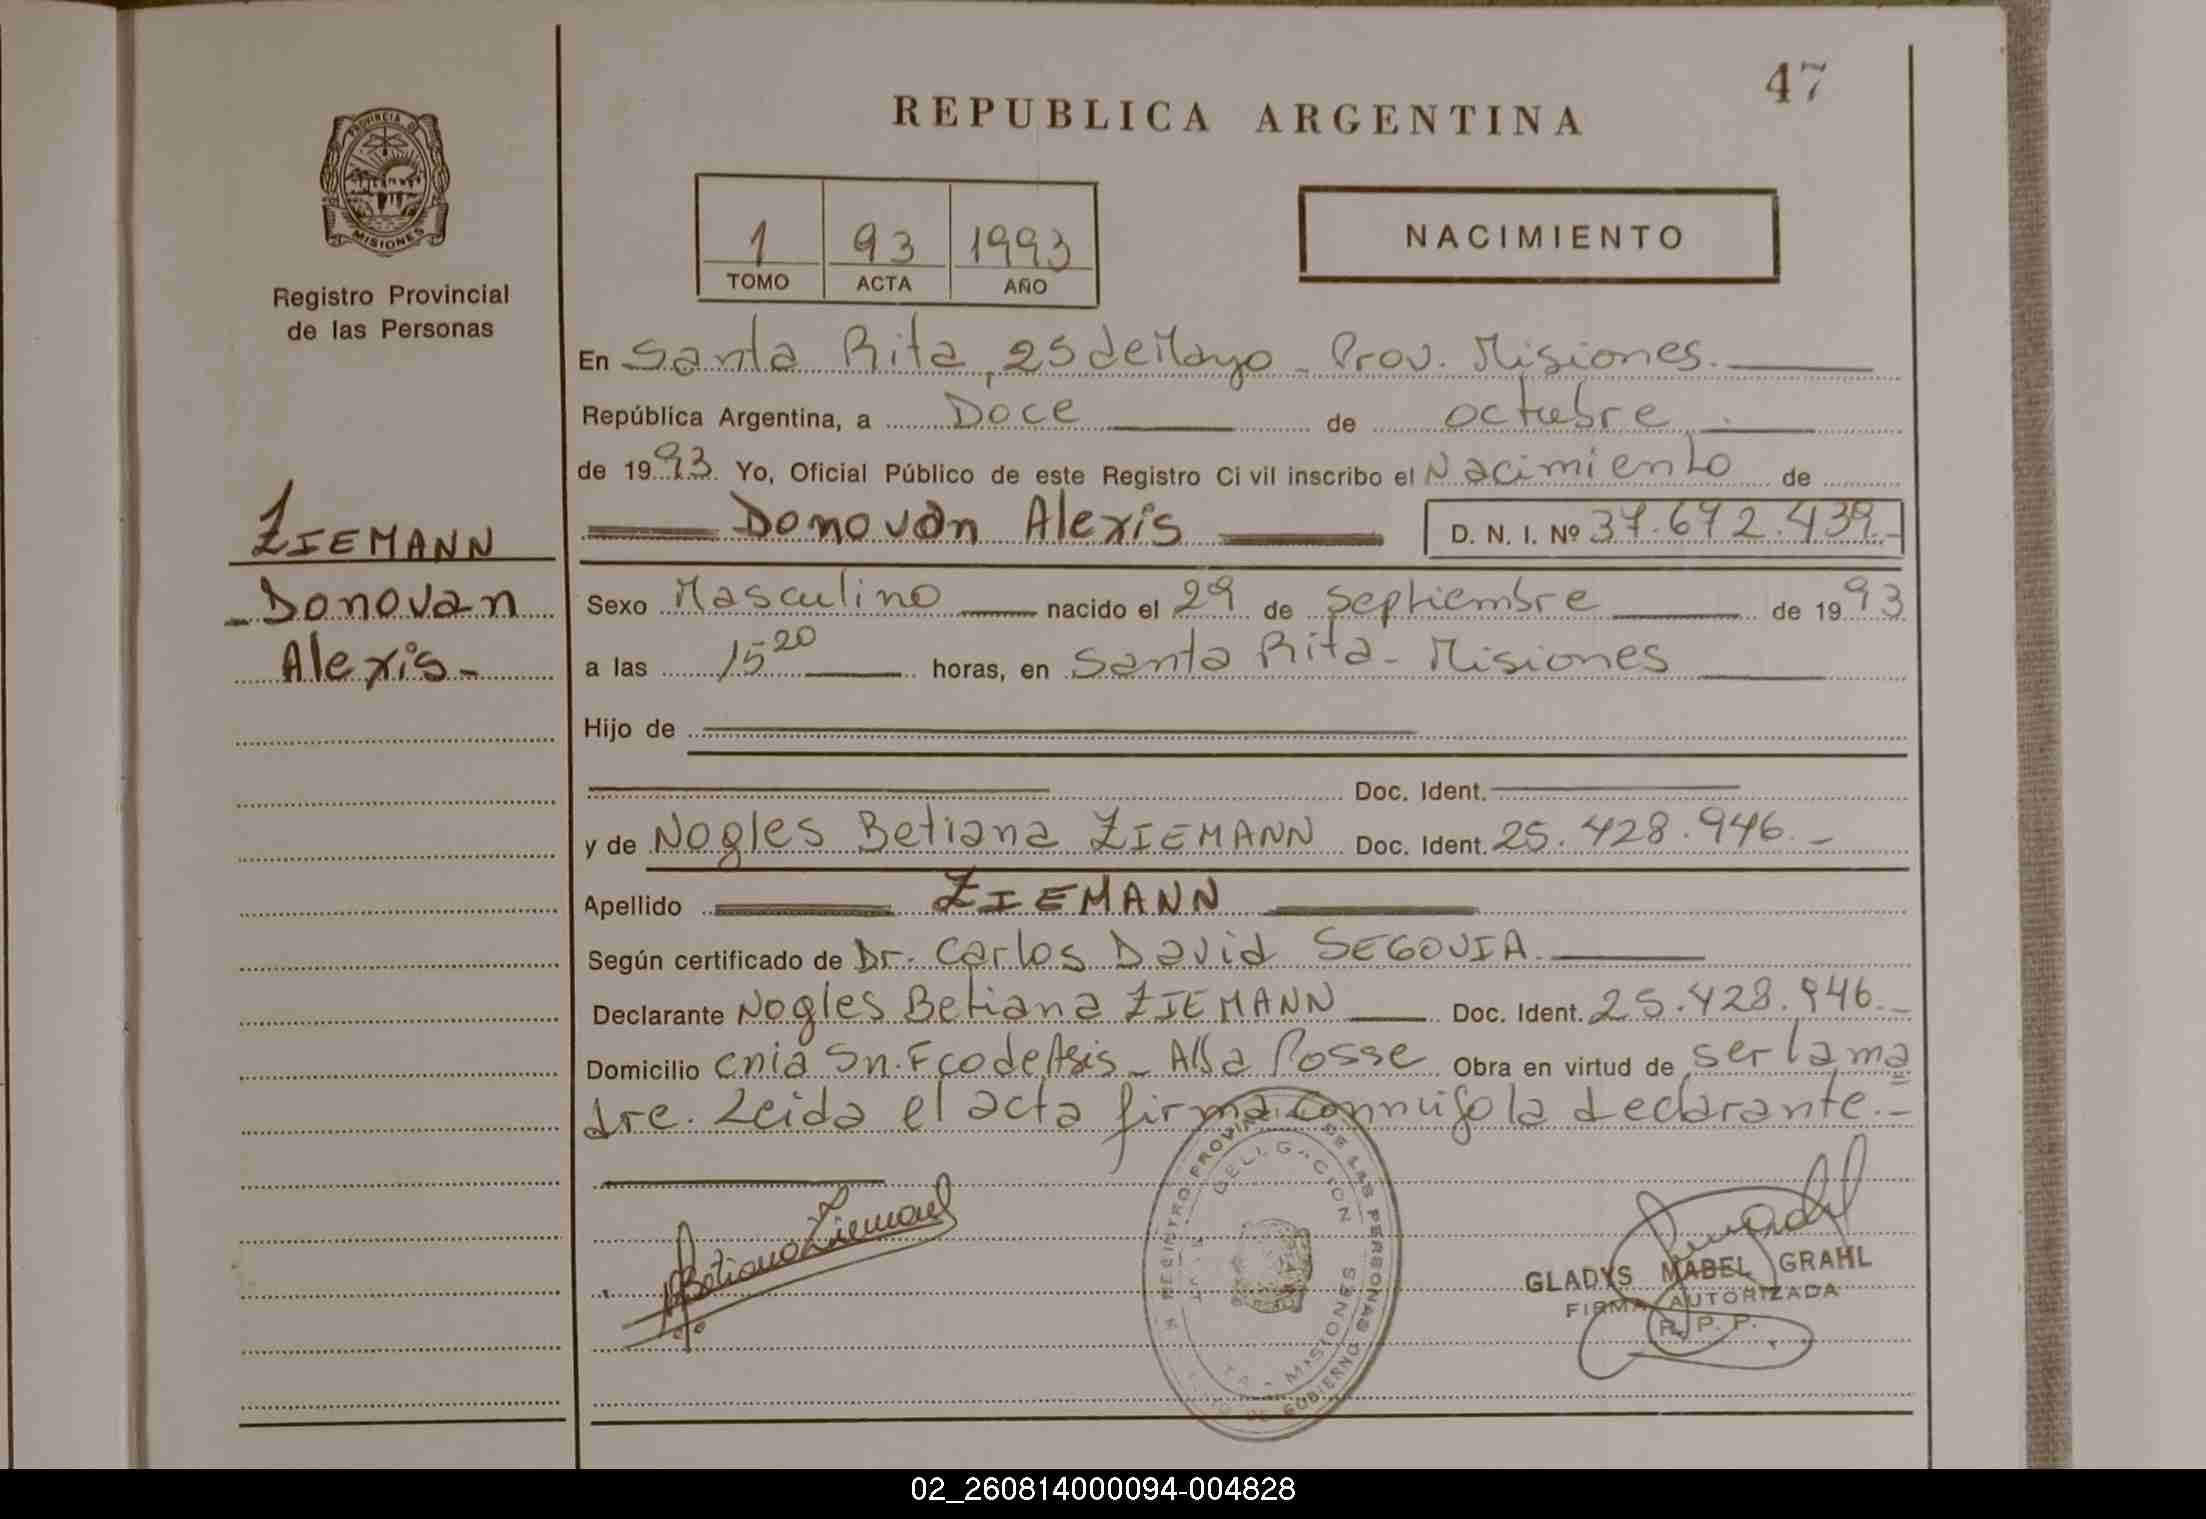 47
REPUBLICA ARGENTINA
PROVINCIA DE
MISIONES
Registro Provincial
de las Personas
1 93 1993
TOMO ACTA AÑO
NACIMIENTO
En Santa Rita, 25 de Mayo - Prov. Misiones.
República Argentina, a Doce de octubre
de 1993. Yo, Oficial Público de este Registro Ci vil inscribo el Nacimiento de
Donovan Alexis D. N. I. Nº 37.672.439.-
ZIEMANN
Donovan
Alexis-
Sexo Masculino nacido el 29 de Septiembre de 1993
a las 15 20 horas, en Santa Rita - Misiones
Hijo de
Doc. Ident.
y de Nogles Betiana ZIEMANN Doc. Ident. 25.428.946.-
Apellido ZIEMANN
Según certificado de Dr. Carlos David SEGOVIA.
Declarante Nogles Betiana ZIEMANN Doc. Ident. 25.428.946.-
Domicilio Cnia Sn. Fco de Asis - Alba Posse Obra en virtud de ser la ma
dre. Leida el acta firma conmigo la declarante.-
REGISTRO PROVINCIAL DE LAS PERSONAS
DELEGACION
MISIONES
GOBIERNO
Betiana Ziemann
GLADYS MABEL GRAHL
FIRMA AUTORIZADA
R. P. P.
02_260814000094-004828